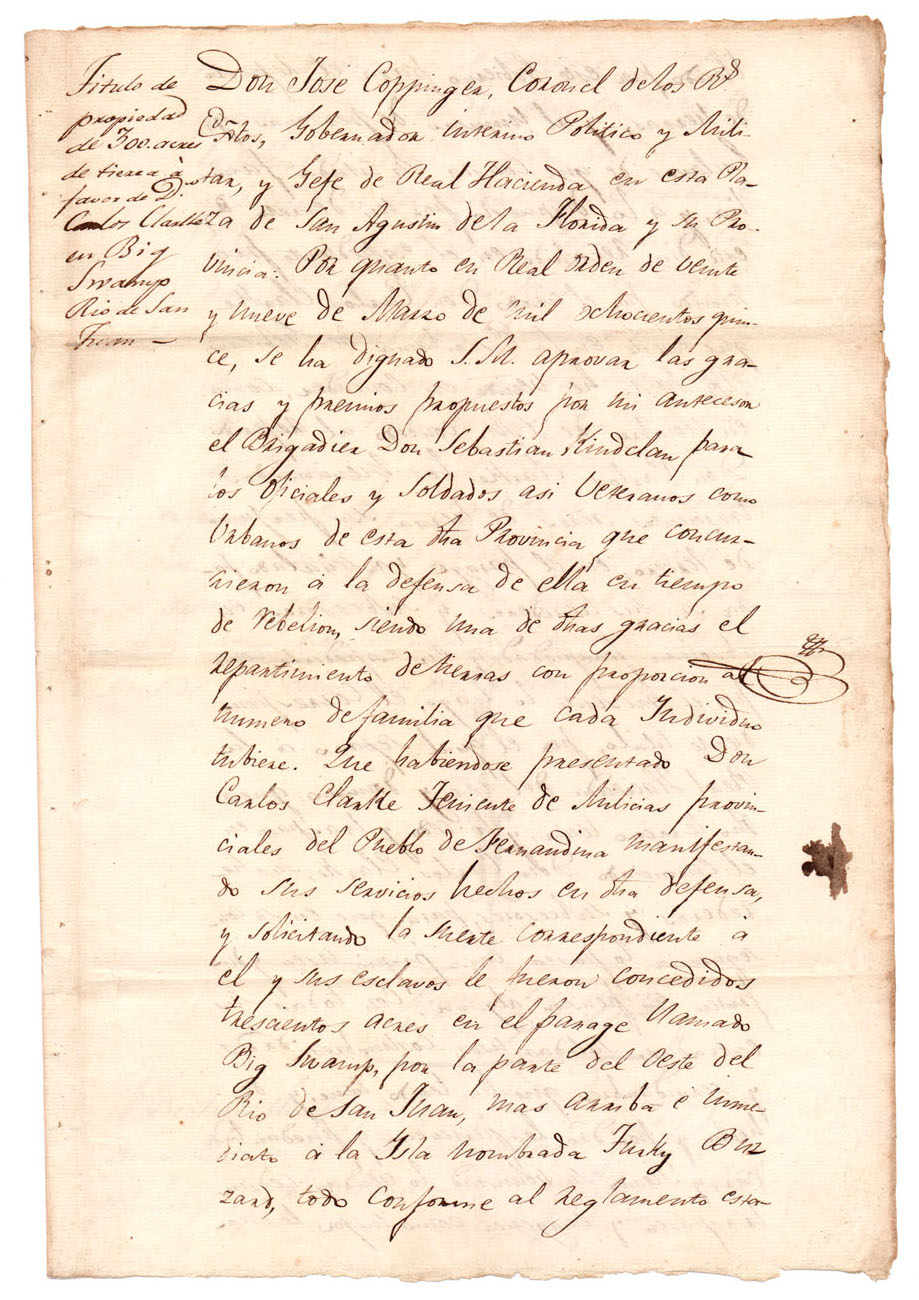 Titulo de
propiedad
de 300. acres
de tierra à
favor de Dn
Carlos Clarke
en Big
Swamp
Rio de San
Juan —
Don José Coppinger, Coronel de los Rs
Extos, Gobernador interino Politico y Mili-
tar, y Gefe de Real Hacienda en esta Pla-
za de San Agustin de la Florida y su Pro-
vincia. Por quanto en Real orden de veinte
y nueve de Marzo de mil ochocientos quin-
ce, se ha dignado S. M. aprovar las gra-
cias y premios propuestos por mi antecesor
el Brigadier Don Sebastian Kindelan para
los oficiales y soldados asi Veteranos como
Urbanos de esta dha Provincia que concur-
rieron à la defensa de ella en tiempo
de rebelion, siendo una de dhas gracias el
repartimiento de tierras con proporcion al
numero de familia que cada Individuo
tubiere. Que habiendose presentado Don
Carlos Clarke Teniente de Milicias provin-
ciales del Pueblo de Fernandina manifestan-
do sus servicios hechos en dha defensa,
y solicitando la suerte correspondiente à
él y sus esclavos le fueron concedidos
trescientos acres en el parage llamado
Big Swamp, por la parte del Oeste del
Rio de San Juan, mas arriba è inme-
diato à la Isla nombrada Turky Buz
zard, todo conforme al reglamento esta-